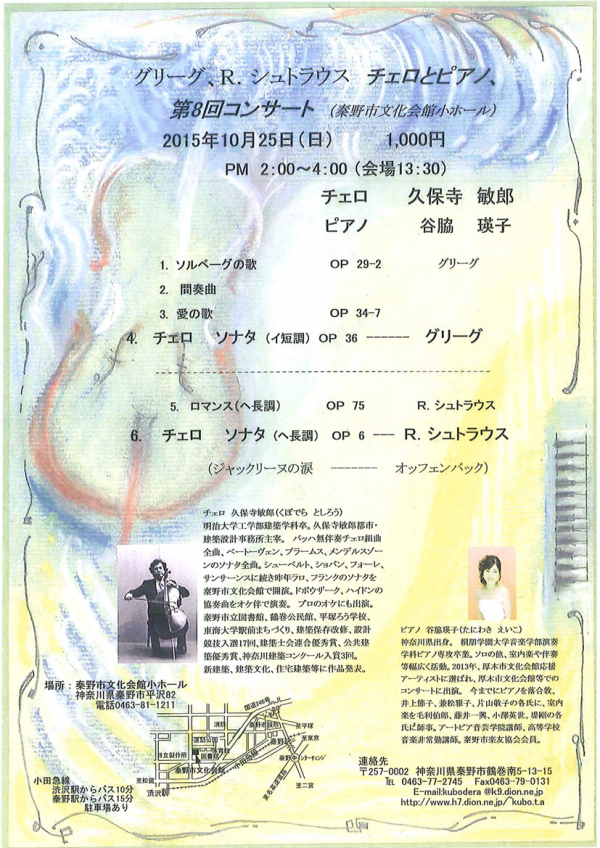 グリーグ、R. シュトラウス チェロとピアノ、
第8回コンサート (秦野市文化会館小ホール)
2015年10月25日(日) 1,000円
PM 2:00〜4:00 (会場13:30)
チェロ 久保寺 敏郎
ピアノ 谷脇 瑛子
1. ソルベーグの歌 OP 29-2 グリーグ
2. 間奏曲
3. 愛の歌 OP 34-7
4. チェロ ソナタ (イ短調) OP 36 ------ グリーグ
5. ロマンス(ヘ長調) OP 75 R. シュトラウス
6. チェロ ソナタ (ヘ長調) OP 6 --- R. シュトラウス
(ジャックリーヌの涙 ------- オッフェンバック)
チェロ 久保寺敏郎(くぼでら としろう)
明治大学工学部建築学科卒。久保寺敏郎都市・
建築設計事務所主宰。 バッハ無伴奏チェロ組曲
全曲、ベートーヴェン、ブラームス、メンデルスゾー
ンのソナタ全曲。シューベルト、ショパン、フォーレ、
サンサーンスに続き昨年ラロ、フランクのソナタを
秦野市文化会館で開演。ドボウザーク、ハイドンの
協奏曲をオケ伴で演奏。 プロのオケにも出演。
秦野市立図書館、鶴巻公民館、平塚ろう学校、
東海大学駅前まちづくり、建築保存改修、設計
競技入選17回、建築士会連合優秀賞、公共建
築優秀賞、神奈川建築コンクール入賞3回。
新建築、建築文化、住宅建築等に作品発表。
ピアノ 谷脇瑛子(たにわき えいこ)
神奈川県出身。 桐朋学園大学音楽学部演奏
学科ピアノ専攻卒業。ソロの他、室内楽や伴奏
等幅広く活動。2013年、厚木市文化会館応援
アーティストに選ばれ、厚木市文化会館等での
コンサートに出演。 今までにピアノを落合敦、
井上節子、兼松雅子、片山敬子の各氏に、室内
楽を毛利伯郎、藤井一興、小澤英世、堤剛の各
氏に師事。アートピア音芸学院講師、高等学校
音楽非常勤講師。秦野市楽友協会会員。
場所：秦野市文化会館小ホール
神奈川県秦野市平沢82
電話0463-81-1211
国道246号
消防
秦野市役所
運動公園
体育館
図書館
日立製作所
秦野市文化会館
小田急線
秦野駅
秦野中井インターチェンジ
東名高速道路
至平塚
至東京
至二宮
至松田
渋沢駅
小田急線
渋沢駅からバス10分
秦野駅からバス15分
駐車場あり
連絡先
〒257-0002 神奈川県秦野市鶴巻南5-13-15
℡ 0463-77-2745 Fax0463-79-0131
E-mail:kubodera @k9.dion.ne.jp
http://www.h7.dion.ne.jp/~kubo.t.a